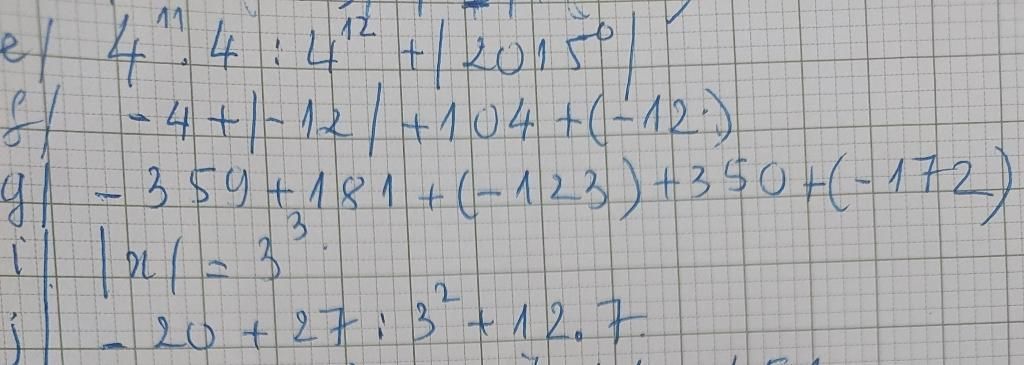 e/ 4¹¹ . 4 : 4¹² + | 2015⁰ |
f/ - 4 + |- 12 | + 104 + (- 12 )
g/ - 359 + 181 + (- 123 ) + 350 + (- 172 )
i/ |x| = 3³.
j/ - 20 + 27 : 3² + 12 . 7.